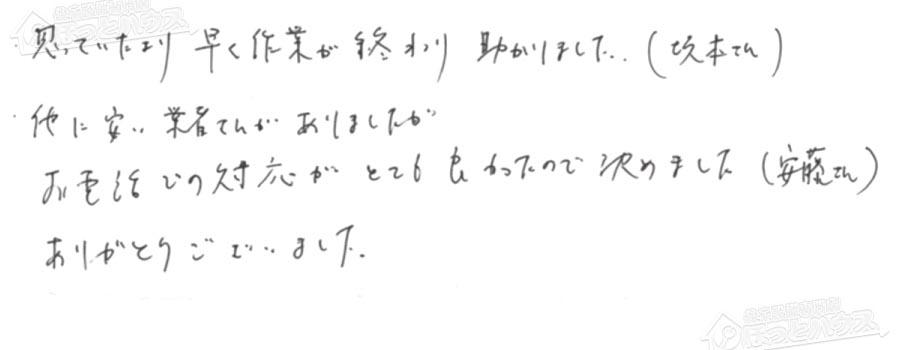 住宅設備専門店
ほっとハウス
・思っていたより 早く作業が 終わり 助かりました.(坂本さん)
・他に安い 業者さんが ありましたが
お電話での対応が とても 良かったので 決めました(安藤さん)
ありがとうございました.
ほっとハウス